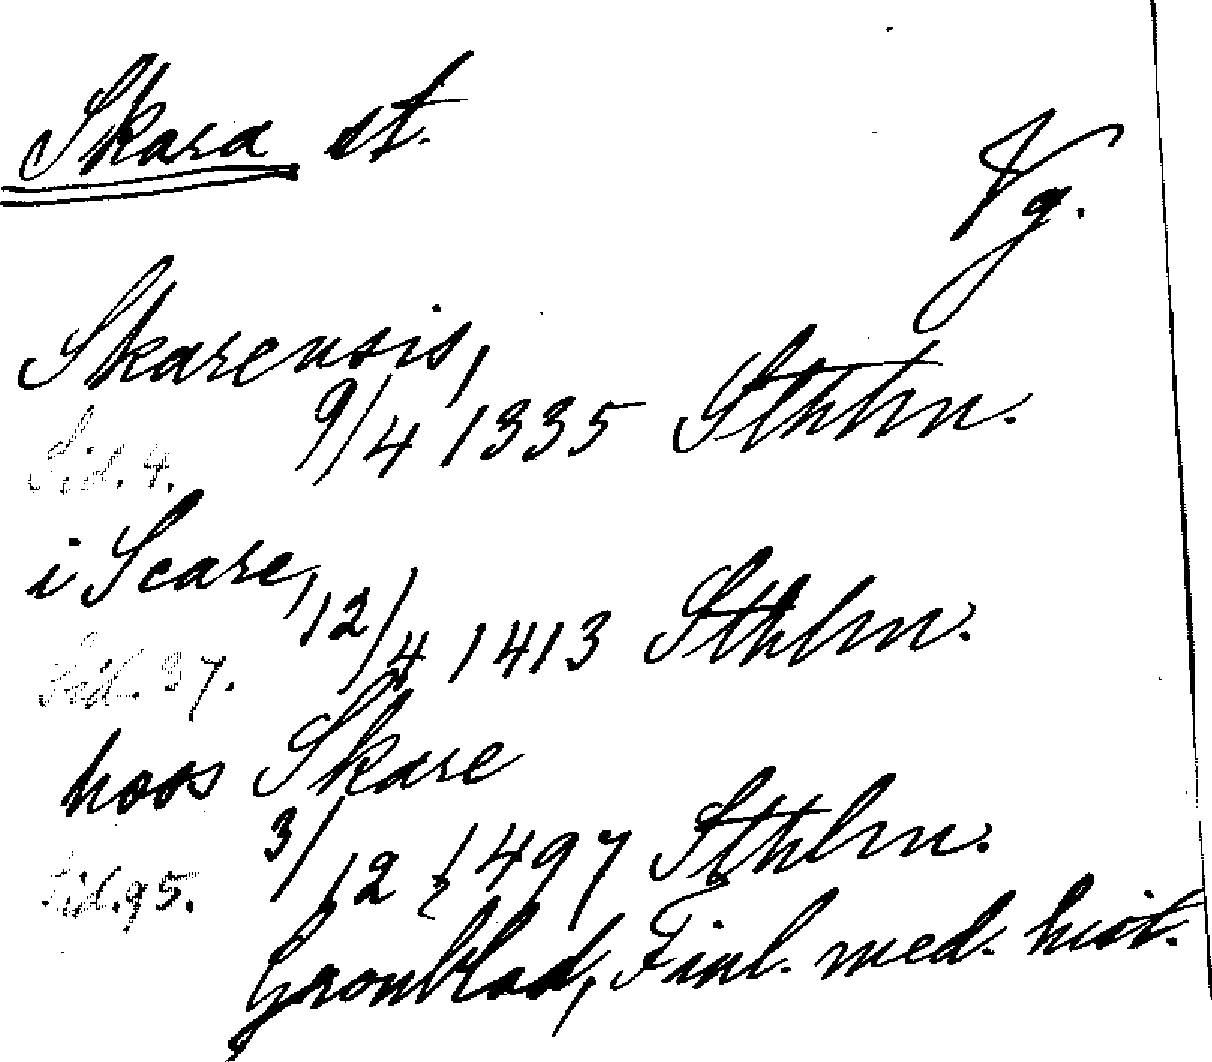 Skara st.
Vg.
Skarensis,
9/4 1335 Sthlm.
Sid. 4.
i Scare,
12/4 1413 Sthlm.
Sid. 37.
hoos Skare
3/12 1497 Sthlm.
Sid. 95.
Grönblad, Finl. med. hist.